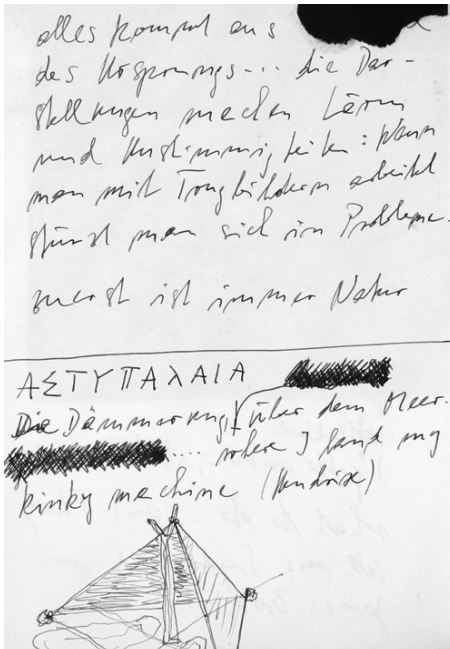 alles kommt aus
des Ursprungs... die Dar-
stellungen machen Lärm
und Unstimmigkeiten: Wenn
man mit Trugbildern arbeitet
stürzt man sich in Probleme.
zuerst ist immer Natur
ΑΣΤΥΠΑλΑΙΑ
Die Dämmerung über dem Meer.
.... where I land my
kinky machine (Hendrix)